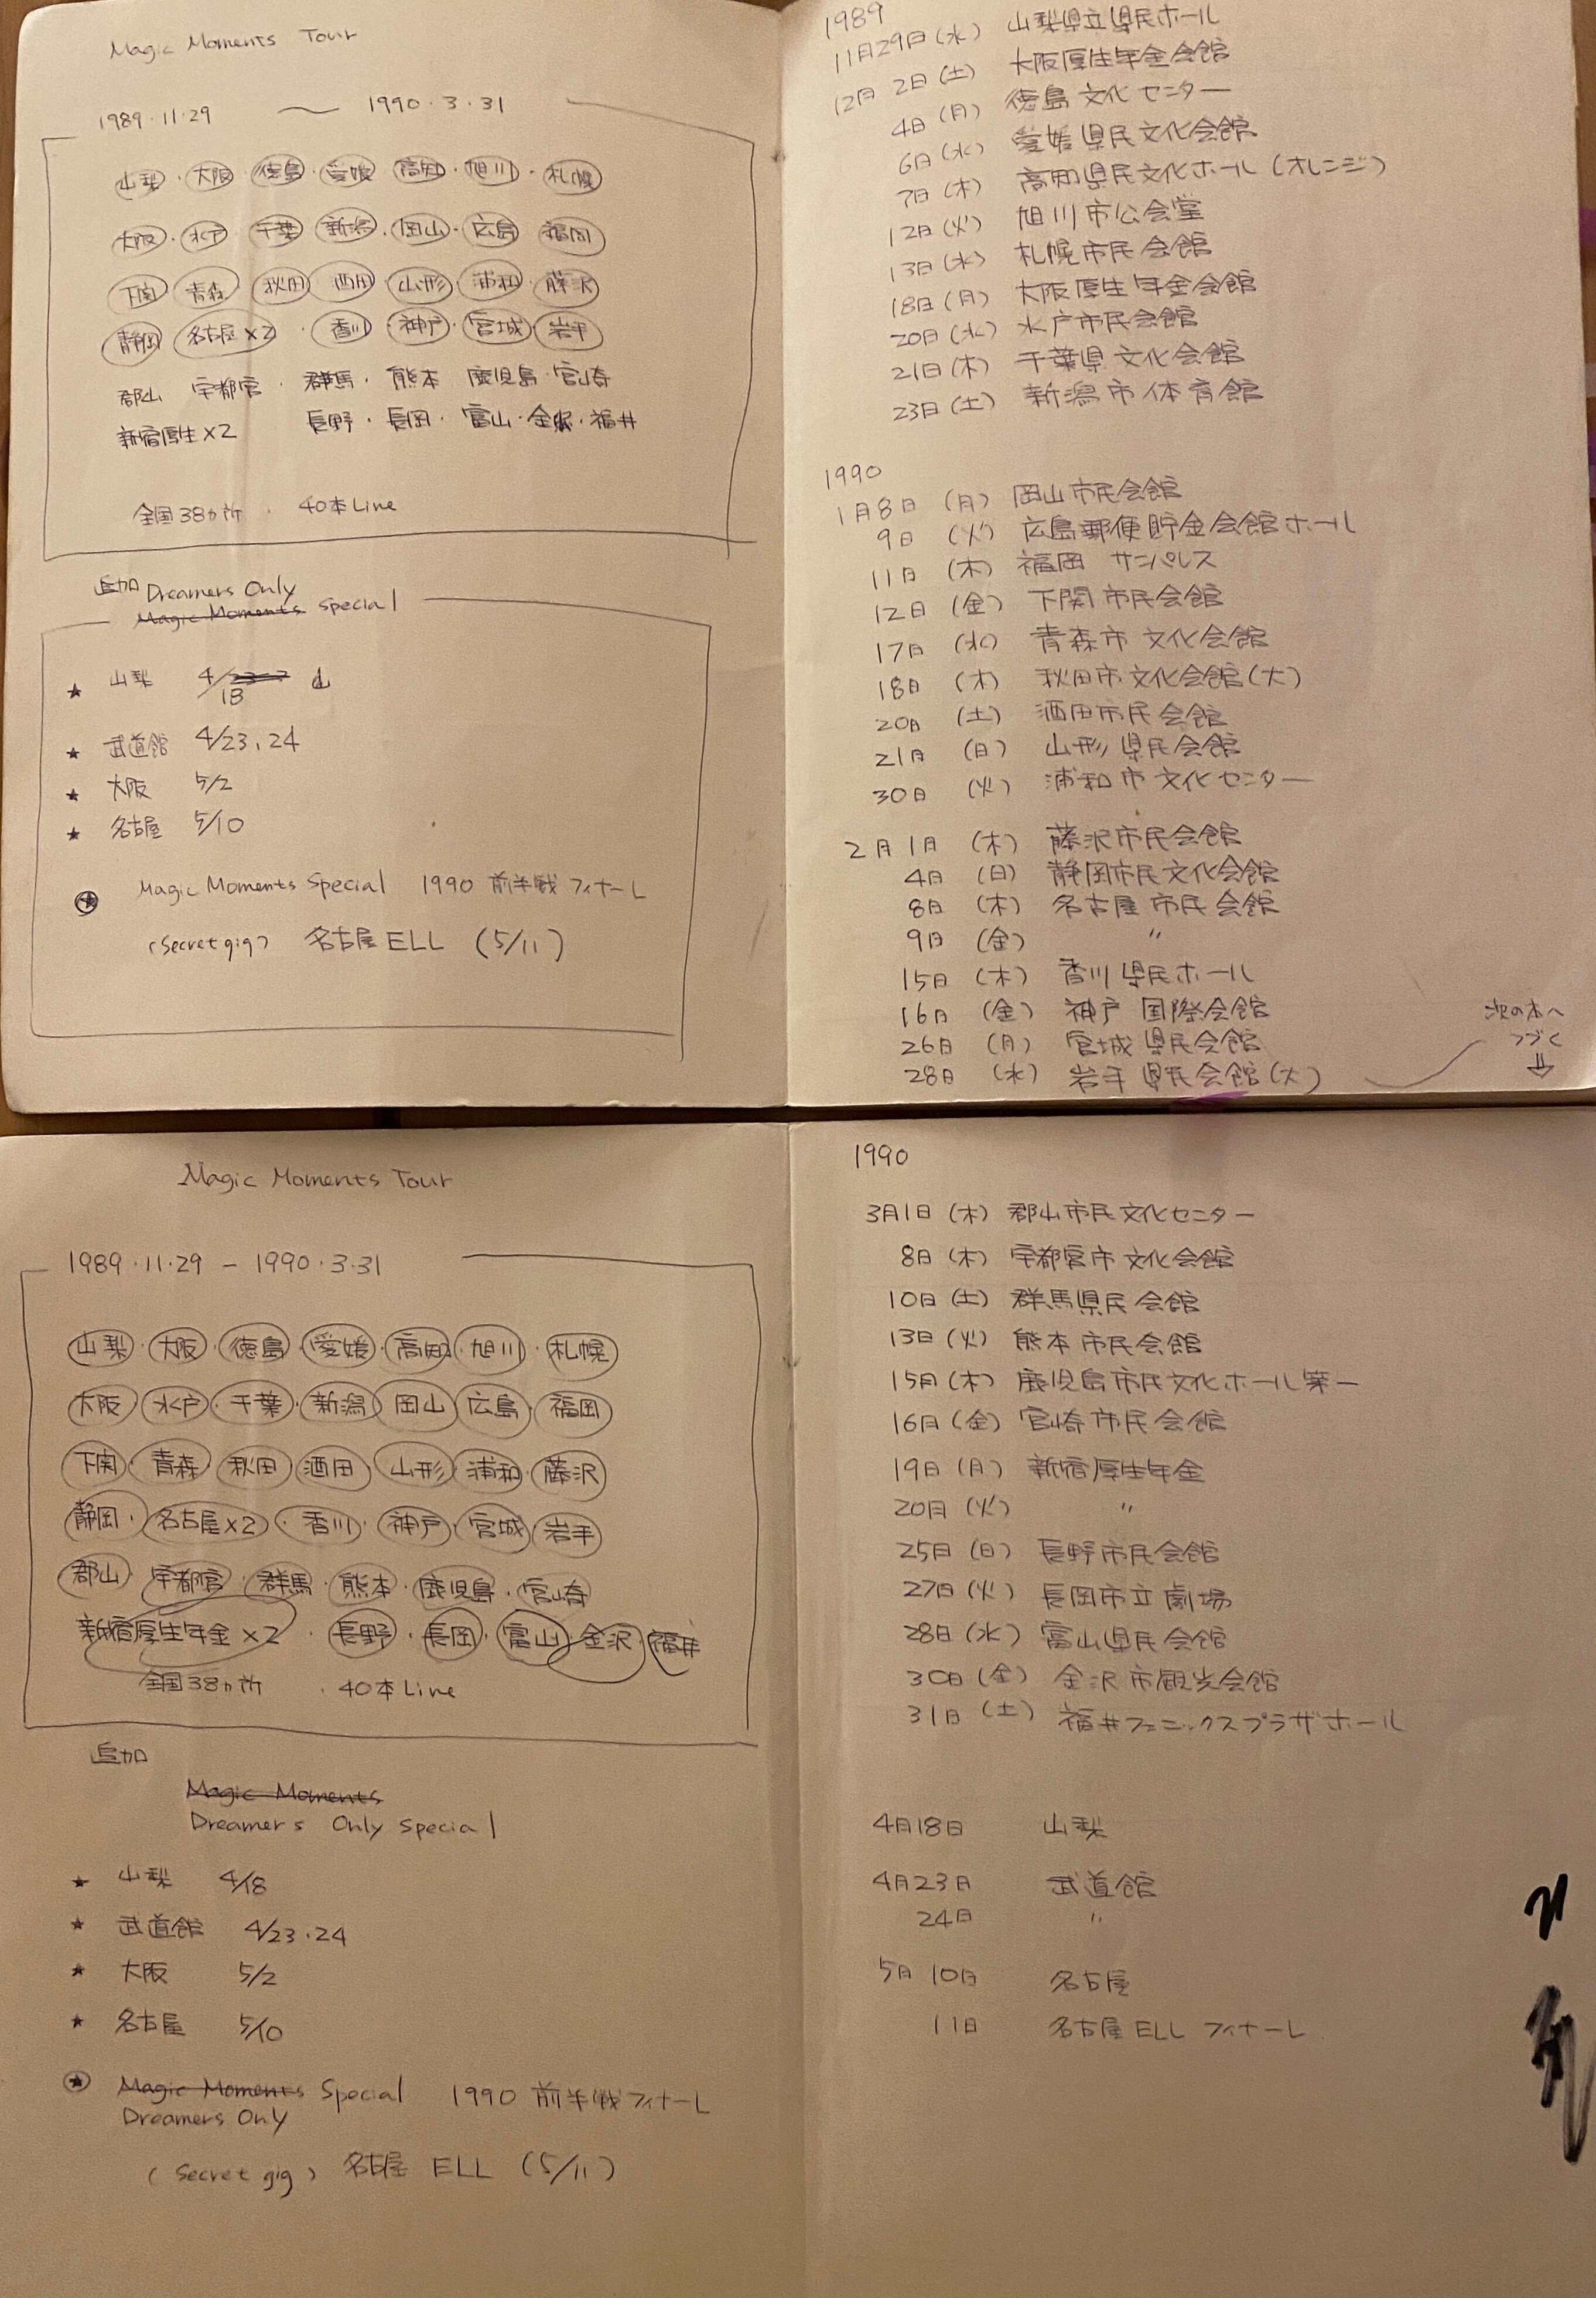 Magic Moments Tour
1989・11・29 〜 1990・3・31
山梨・大阪・徳島・愛媛・高知・旭川・札幌
大阪・水戸・千葉・新潟・岡山・広島・福岡
下関・青森・秋田・酒田・山形・浦和・藤沢
静岡・名古屋×2・香川・神戸・宮城・岩手
郡山 宇都宮・群馬・熊本 鹿児島・宮崎
新宿厚生×2 長野・長岡・富山・金沢・福井
全国38ヵ所・40本Line
追加 Dreamers Only
Magic Moments Special
★ 山梨 4/23
18
★ 武道館 4/23.24
★ 大阪 5/2
★ 名古屋 5/10
★ Magic Moments Special 1990 前半戦フィナーレ
(Secret gig) 名古屋 ELL (5/11)
1989
11月29日(水) 山梨県立県民ホール
12月2日(土) 大阪厚生年金会館
4日(月) 徳島文化センター
6日(水) 愛媛県民文化会館
7日(木) 高知県民文化ホール(オレンジ)
12日(火) 旭川市公会堂
13日(水) 札幌市民会館
18日(月) 大阪厚生年金会館
20日(水) 水戸市民会館
21日(木) 千葉県文化会館
23日(土) 新潟市体育館
1990
1月8日(月) 岡山市民会館
9日(火) 広島郵便貯金会館ホール
11日(木) 福岡サンパレス
12日(金) 下関市民会館
17日(水) 青森市文化会館
18日(木) 秋田市文化会館(大)
20日(土) 酒田市民会館
21日(日) 山形県民会館
30日(火) 浦和市文化センター
2月1日(木) 藤沢市民会館
4日(日) 静岡市民文化会館
8日(木) 名古屋市民会館
9日(金) 〃
15日(木) 香川県民ホール
16日(金) 神戸国際会館
26日(月) 宮城県民会館
28日(水) 岩手県民会館(大)
次の本へ
つづく
⇓
Magic Moments Tour
1989・11・29 - 1990・3・31
山梨・大阪・徳島・愛媛・高知・旭川・札幌
大阪・水戸・千葉・新潟・岡山・広島・福岡
下関・青森・秋田・酒田・山形・浦和・藤沢
静岡・名古屋×2・香川・神戸・宮城・岩手
郡山・宇都宮・群馬・熊本・鹿児島・宮崎
新宿厚生年金×2・長野・長岡・富山・金沢・福井
全国38ヵ所・40本Line
追加
Magic Moments
Dreamers Only Special
★ 山梨 4/18
★ 武道館 4/23.24
★ 大阪 5/2
★ 名古屋 5/10
★ Magic Moments Special 1990 前半戦フィナーレ
Dreamers Only
(Secret gig) 名古屋 ELL (5/11)
1990
3月1日(木) 郡山市民文化センター
8日(木) 宇都宮市文化会館
10日(土) 群馬県民会館
13日(火) 熊本市民会館
15日(木) 鹿児島市民文化ホール第一
16日(金) 宮崎市民会館
19日(月) 新宿厚生年金
20日(火) 〃
25日(日) 長野市民会館
27日(火) 長岡市立劇場
28日(水) 富山県民会館
30日(金) 金沢市観光会館
31日(土) 福井フェニックスプラザホール
4月18日 山梨
4月23日 武道館
24日 〃
5月10日 名古屋
11日 名古屋ELL フィナーレ